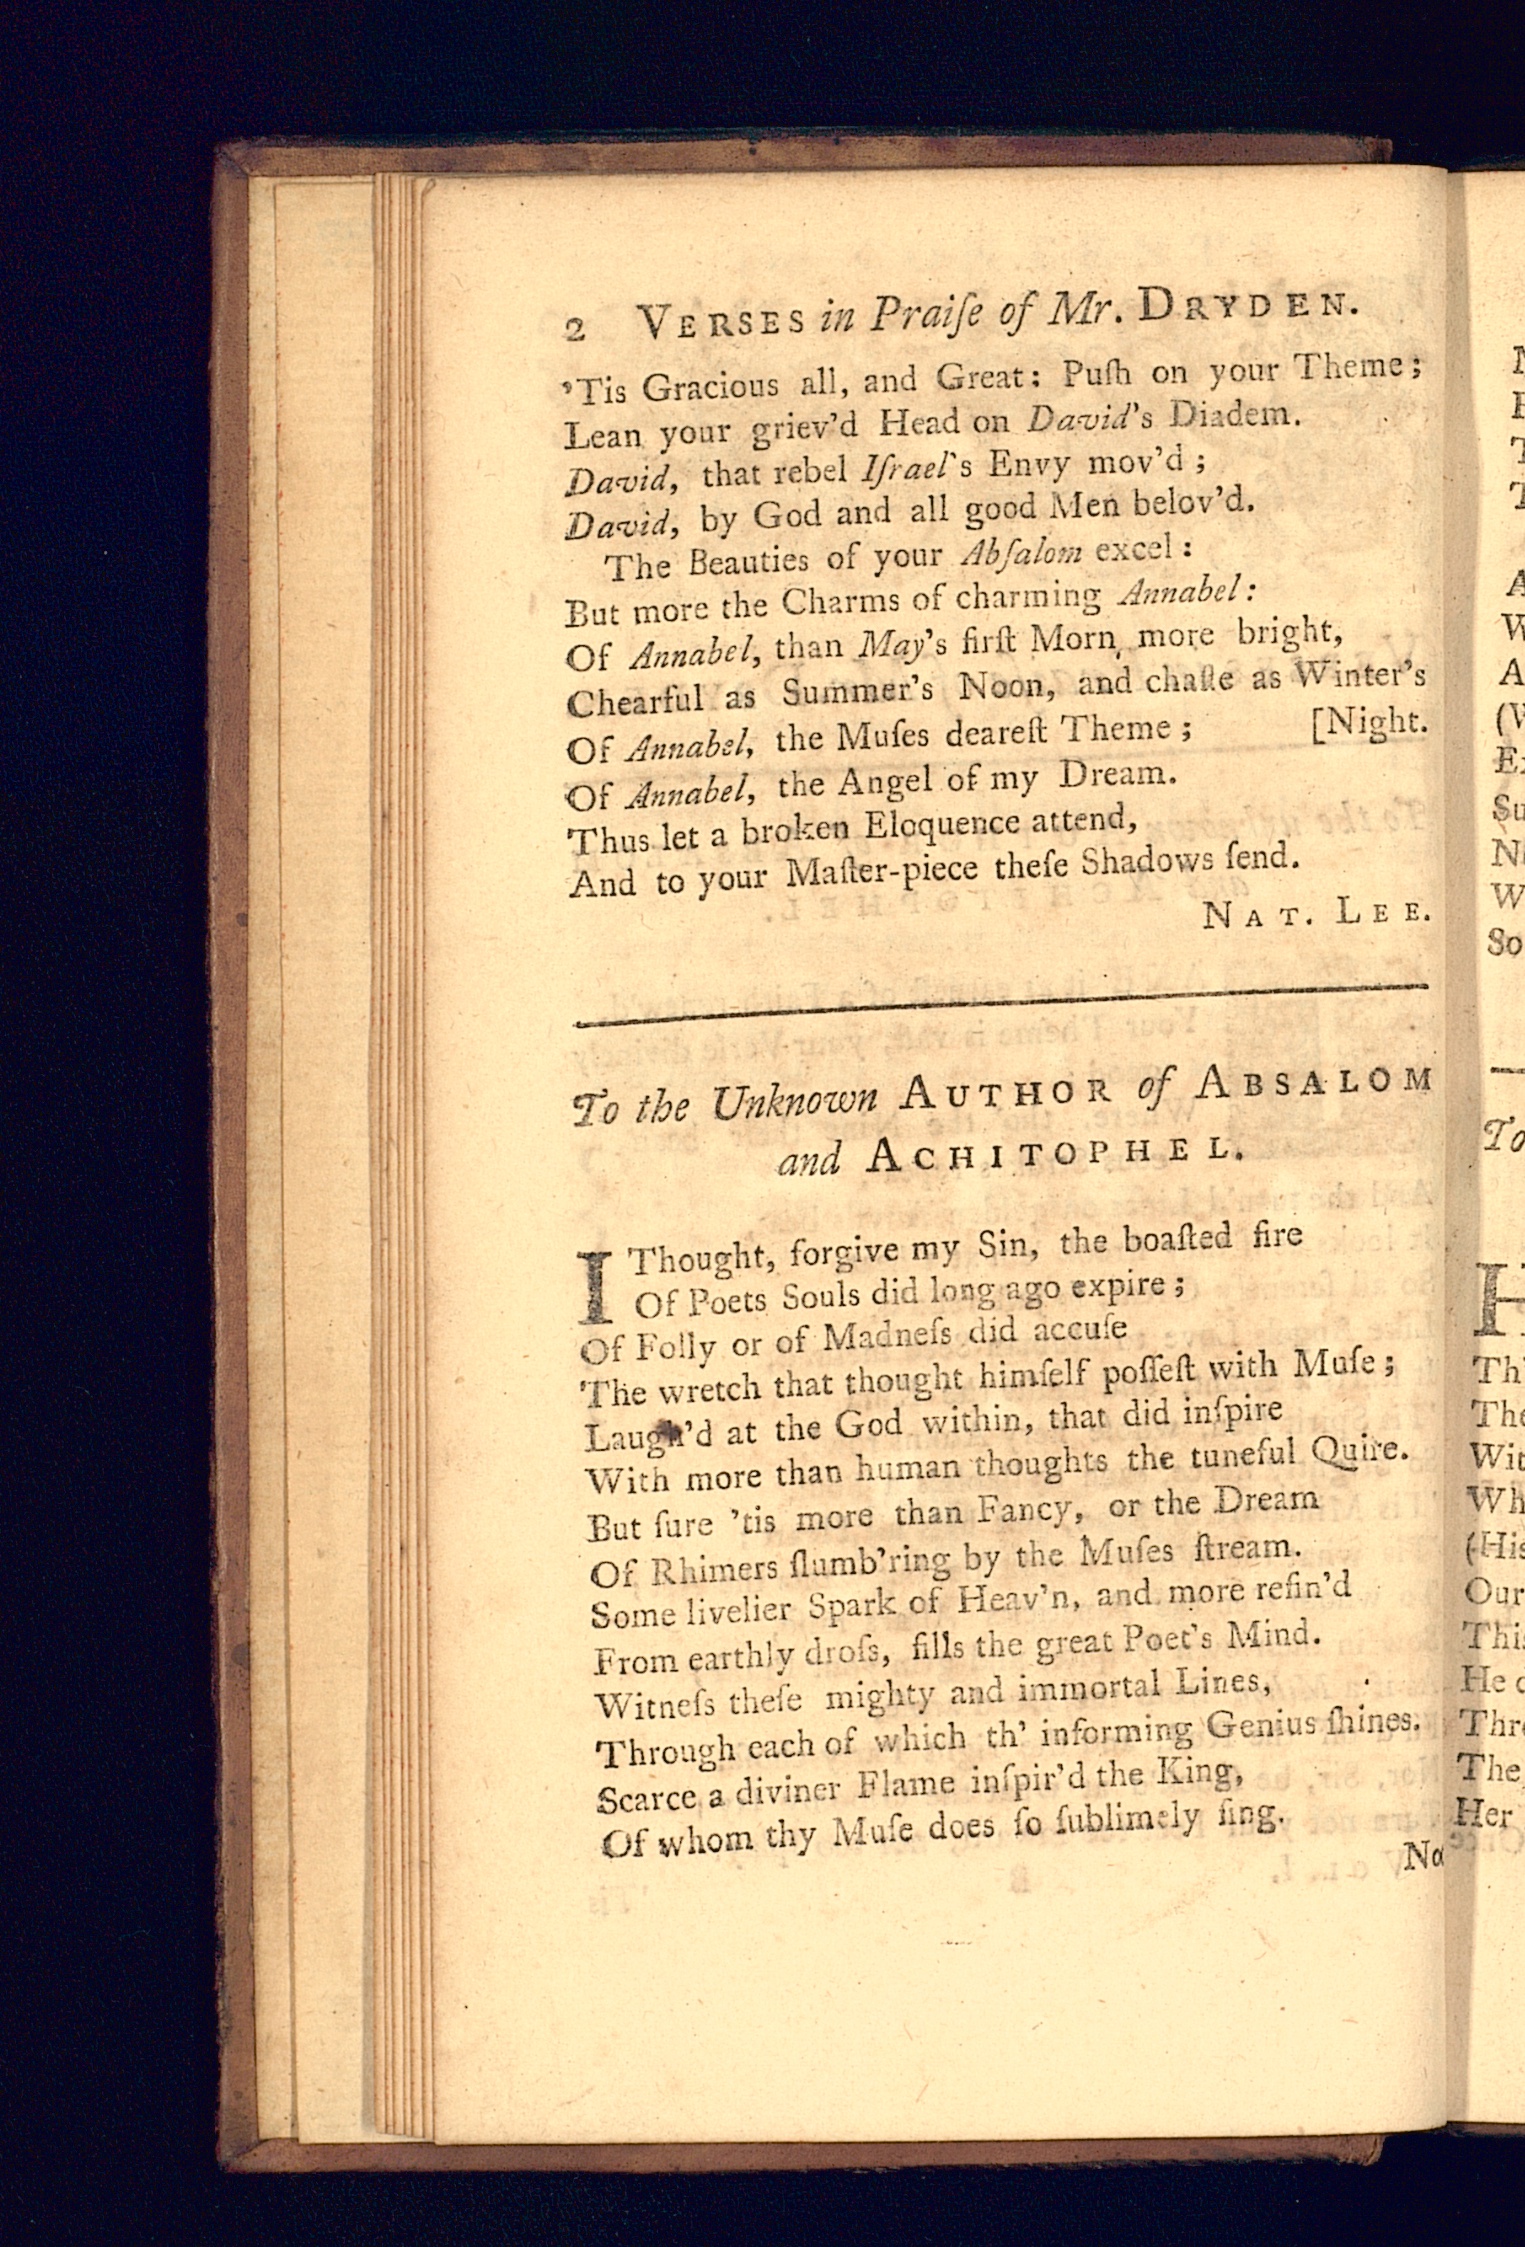 2 VERSES in Praiſe of Mr. DRYDEN.
’Tis Gracious all, and Great: Puſh on your Theme;
Lean your griev’d Head on David’s Diadem.
David, that rebel Iſrael’s Envy mov’d;
David, by God and all good Men belov’d.
The Beauties of your Abſalom excel:
But more the Charms of charming Annabel:
Of Annabel, than May’s firſt Morn more bright,
Chearful as Summer’s Noon, and chaſte as Winter’s
Of Annabel, the Muſes deareſt Theme; [Night.
Of Annabel, the Angel of my Dream.
Thus let a broken Eloquence attend,
And to your Maſter-piece theſe Shadows ſend.
NAT. LEE.
To the Unknown AUTHOR of ABSALOM
and ACHITOPHEL.
I Thought, forgive my Sin, the boaſted fire
Of Poets Souls did long ago expire;
Of Folly or of Madneſs did accuſe
The wretch that thought himſelf poſſeſt with Muſe;
Laugh’d at the God within, that did inſpire
With more than human thoughts the tuneful Quire.
But ſure ’tis more than Fancy, or the Dream
Of Rhimers ſlumb’ring by the Muſes ſtream.
Some livelier Spark of Heav’n, and more refin’d
From earthly droſs, fills the great Poet’s Mind.
Witneſs theſe mighty and immortal Lines,
Through each of which th’ informing Genius ſhines.
Scarce a diviner Flame inſpir’d the King,
Of whom thy Muſe does ſo ſublimely ſing.